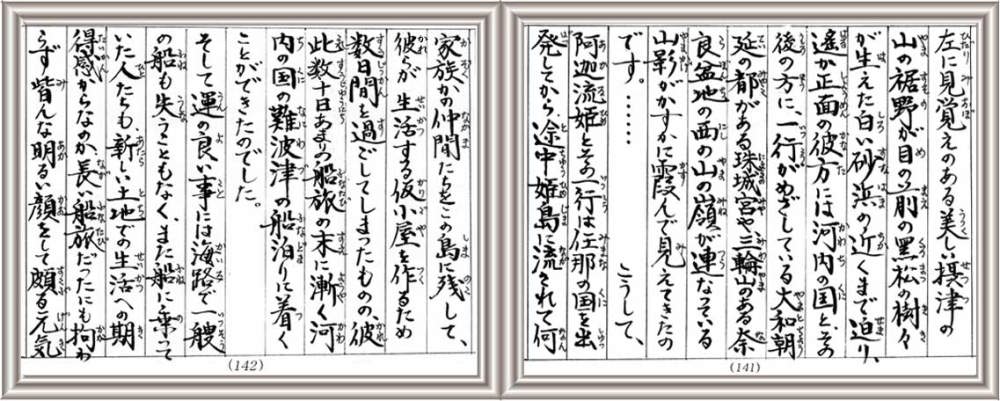 左に見覚えのある美しい摂津の
山の裾野が目の前の黒松の樹々
が生えた白い砂浜の近くまで迫り、
遙か正面の彼方には河内の国と、その
後の方に、一行がめざしている大和朝
延の都がある珠城宮や三輪山のある奈
良盆地の西の山の嶺が連なっている
山影がかすかに霞んで見えてきたの
です。…… こうして、
阿迦流姫とその一行は任那の国を出
発してから、途中姫島に流されて何
(141)
家族かの仲間たちをこの島に残して、
彼らが生活する仮小屋を作るため
数日間を過ごしてしまったものの、彼
此数十日あまりの船旅の末に漸く河
内の国の難波津の船泊りに着く
ことができたのでした。
そして運の良い事には海路で一艘
の船も失うこともなく、また船に乗って
いた人たちも、新しい土地での生活への期
得感からなのか、長い船旅だったにも拘わ
らず皆んな明るい顔をして頗る元気
(142)